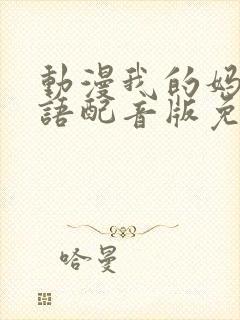 動漫我的妈
語配音版免
哈曼